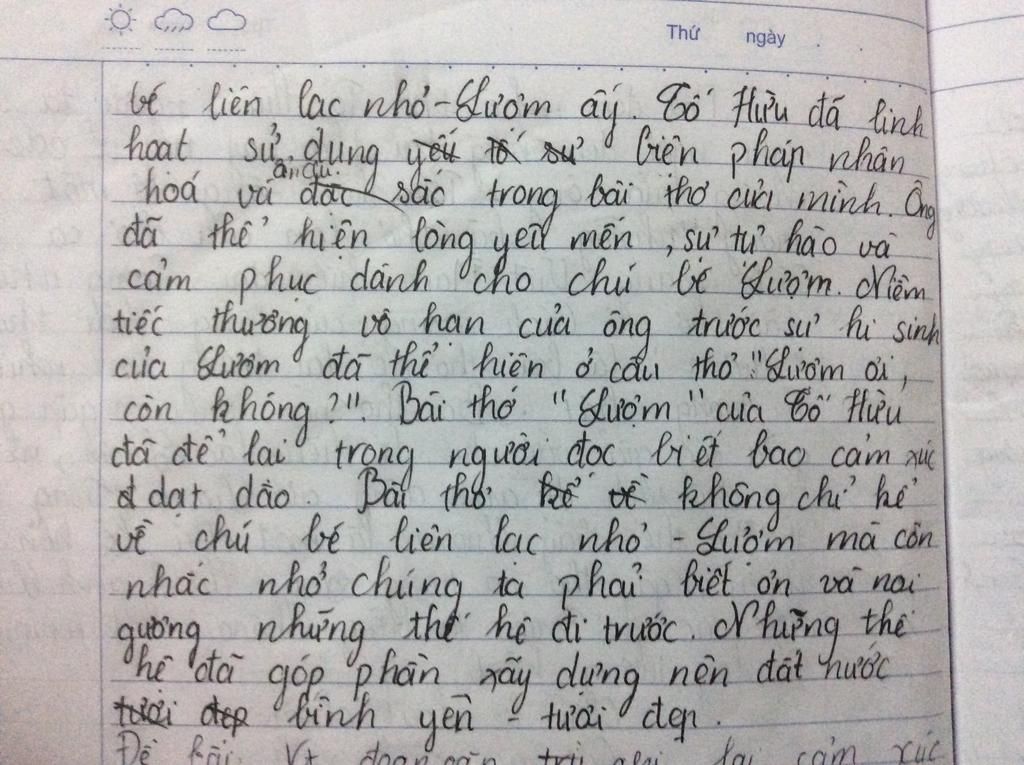 Thứ ngày
bé liên lạc nhỏ - Lượm ấy. Tố Hữu đã linh
hoạt sử dụng yếu tố sử biện pháp nhân
ẩn dụ.
hoá và đặc sắc trong bài thơ của mình. Ông
đã thể hiện lòng yêu mến, sự tự hào và
cảm phục dành cho chú bé Lượm. Niềm
tiếc thương vô hạn của ông trước sự hi sinh
của Lượm đã thể hiện ở câu thơ "Lượm ơi,
còn không?". Bài thơ "Lượm" của Tố Hữu
đã để lại trong người đọc biết bao cảm xúc
dạt dào Bài thơ kể về không chỉ kể
về chú bé liên lạc nhỏ - Lượm mà còn
nhắc nhở chúng ta phải biết ơn và noi
gương những thế hệ đi trước. Những thế
hệ đã góp phần xây dựng nên đất nước
tươi đẹp bình yên - tươi đẹp.
Đề bài: đoạn văn lại cảm xúc